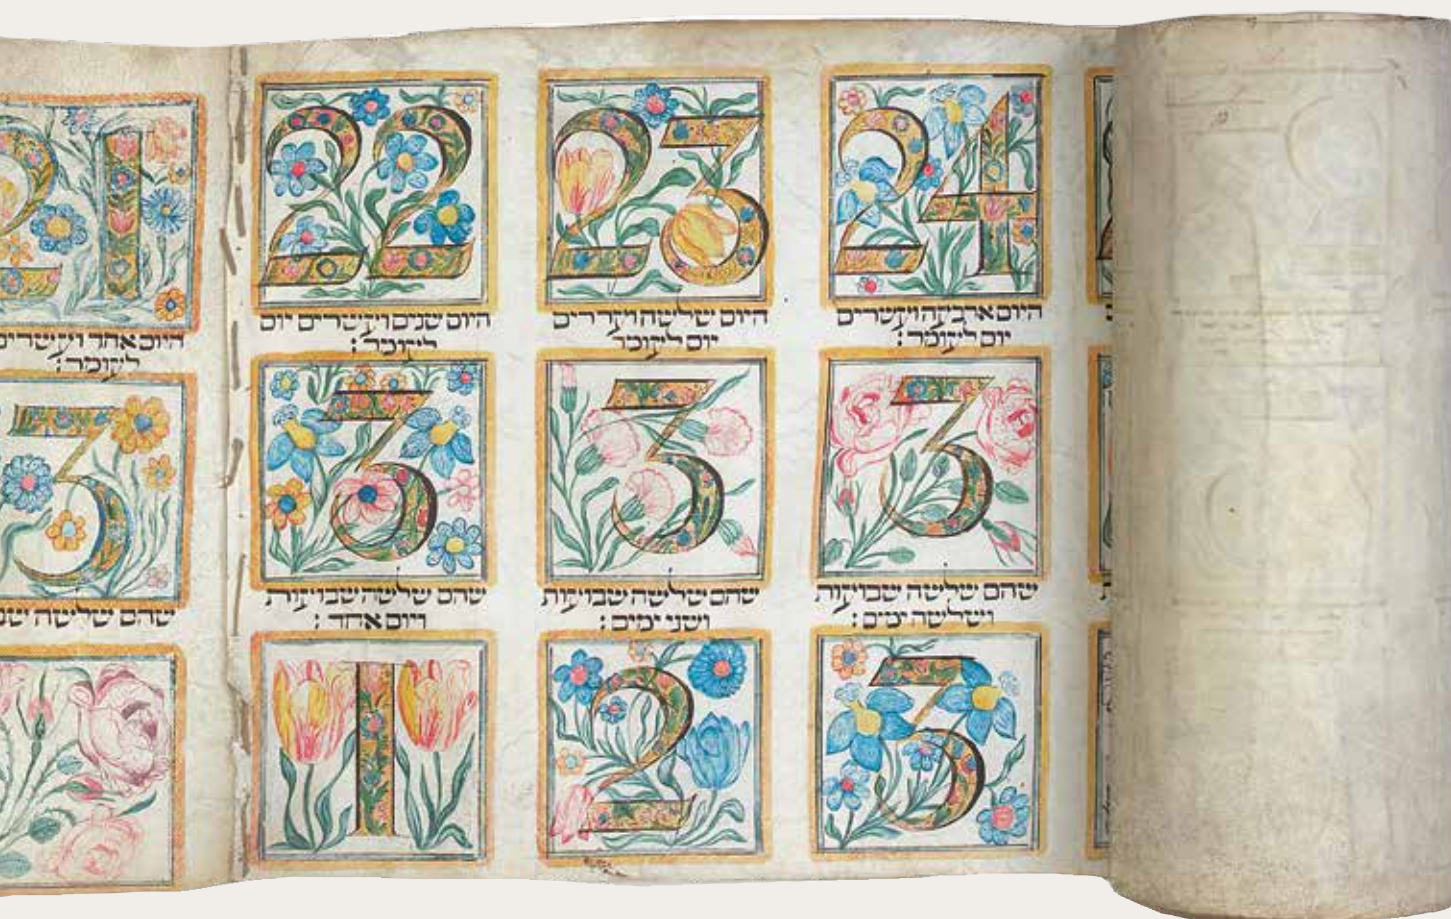 21
היום אחד ועשרים
לעומר :
3
שהם שלשה
22
היום שנים ועשרים יום
לעומר :
3
שהם שלשה שבועות
ויום אחד :
1
23
היום שלשה ועשרים
יום לעומר
3
שהם שלשה שבועות
ושני ימים :
2
24
היום ארבעה ועשרים
יום לעומר :
3
שהם שלשה שבועות
ושלשה ימים :
3